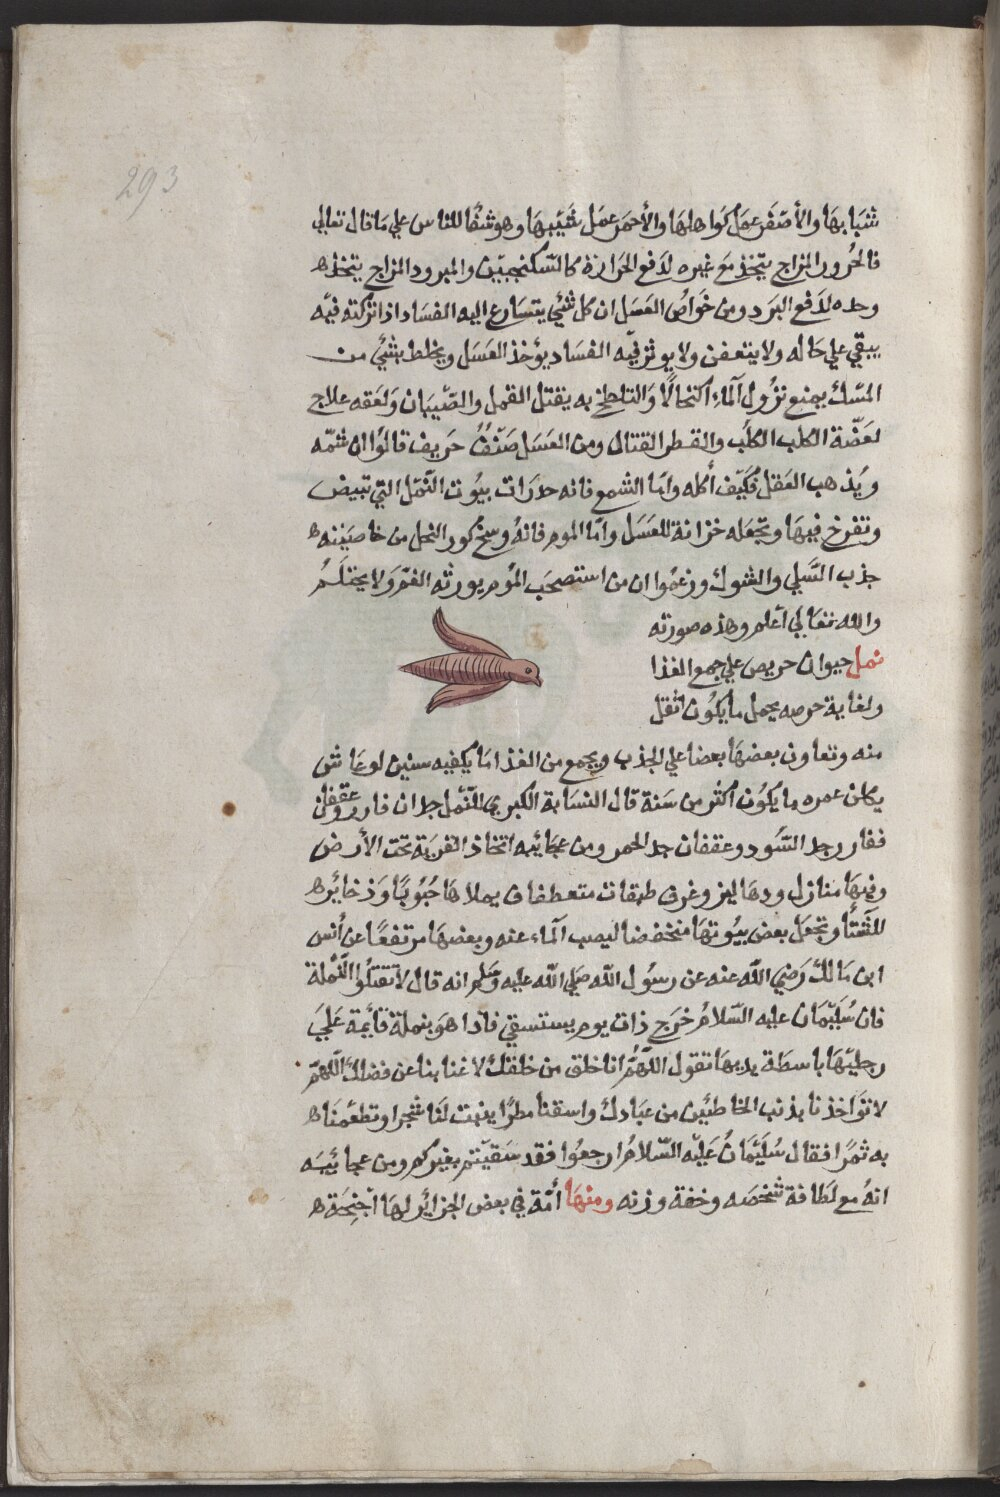 293
شبابها والأصفر عمل كواهلها والأحمر عمل شيبها وهو شفا للناس علي ما قال تعالي
فالمحرور المزاج يتخذ مع غيره لدفع الحرارة كالسكنجبين والمبرود المزاج يتخذه
وحده لدفع البرد ومن خواص العسل ان كل شئي يتسارع اليه الفساد اذا تركته فيه
يبقي علي حاله ولا يتعفن ولا يوثر فيه الفساد يؤخذ العسل ويخلط بشئ من
المسك يمنع نزول الماء اكتحالًا والتلطخ به يقتل القمل والصيبان ولعقه علاج
لعضة الكلب الكلب والفطر القتال ومن العسل صنف حريف قالوا ان شمه
ويذهب العقل فكيف أكله واما الشمع فانه حدرات بيوت النحل التي تبيض
وتفرخ فيها وتجعله خزانة للعسل واما الموم فانه وسخ كور النحل من خاصيتته
جذب السلي والشوك وزعموا ان من استصحب الموم يورثه الغم ولا يحتلم
والله تعالي أعلم وهذه صورته
نمل حيوان حريص علي جمع الغذا
ولغاية حرصه يحمل ما يكون اثقل
منه وتعاون بعضها بعضا علي الجذب ويجمع من الغذا ما يكفيه سنين لو عاش
يكلن عمره ما يكون اكثر من سنة قال النسابة الكبري للنمل جدان فارر وعقفان
ففارر جد السود وعقفان جد الحمر ومن عجائبه اتخاذ القرية تحت الأرض
وفيها منازل ودهاليز وغرف طبقات متعطفات يملاها حبوبًا وذخائره
للشتأ وتجعل بعض بيوتها منخفضا ليصب الماء عنه وبعضها مرتفعًا عن أنس
ابن مالك رضي الله عنه عن رسول الله صلي الله عليه وسلم انه قال لا تقتلوا النملة
فان سليمان عليه السلام خرج ذات يوم يستسقي فاذا هو بنملة قائمة علي
رجليها باسطة يديها تقول اللهم انا خلق من خلقك لا غنا بنا عن فضلك اللهم
لا تواخذنا بذنب الخاطئين من عبادك واسقنا مطرًا ينبت لنا شجرا وتطعمنا
به ثمرًا فقال سليمان عليه السلام ارجعوا فقد سقيتم بغيركم ومن عجائبه
انه مع لطافة شخصه وخفة وزنه ومنها أمة في بعض الجزائر لها أجنحة